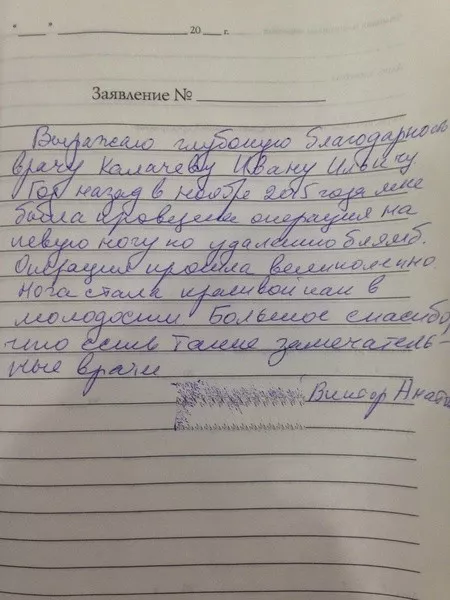 "___" ____________ 20 ___ г.
Заявление № ____________
Выражаю глубокую благодарность
врачу Калачеву Ивану Ильичу
Год назад в ноябре 2015 года мне
была проведена операция на
левую ногу по удалению блямб.
Операция прошла великолепно.
Нога стала красивой как в
молодости Большое спасибо,
что есть такие замечатель-
ные врачи
Виктор